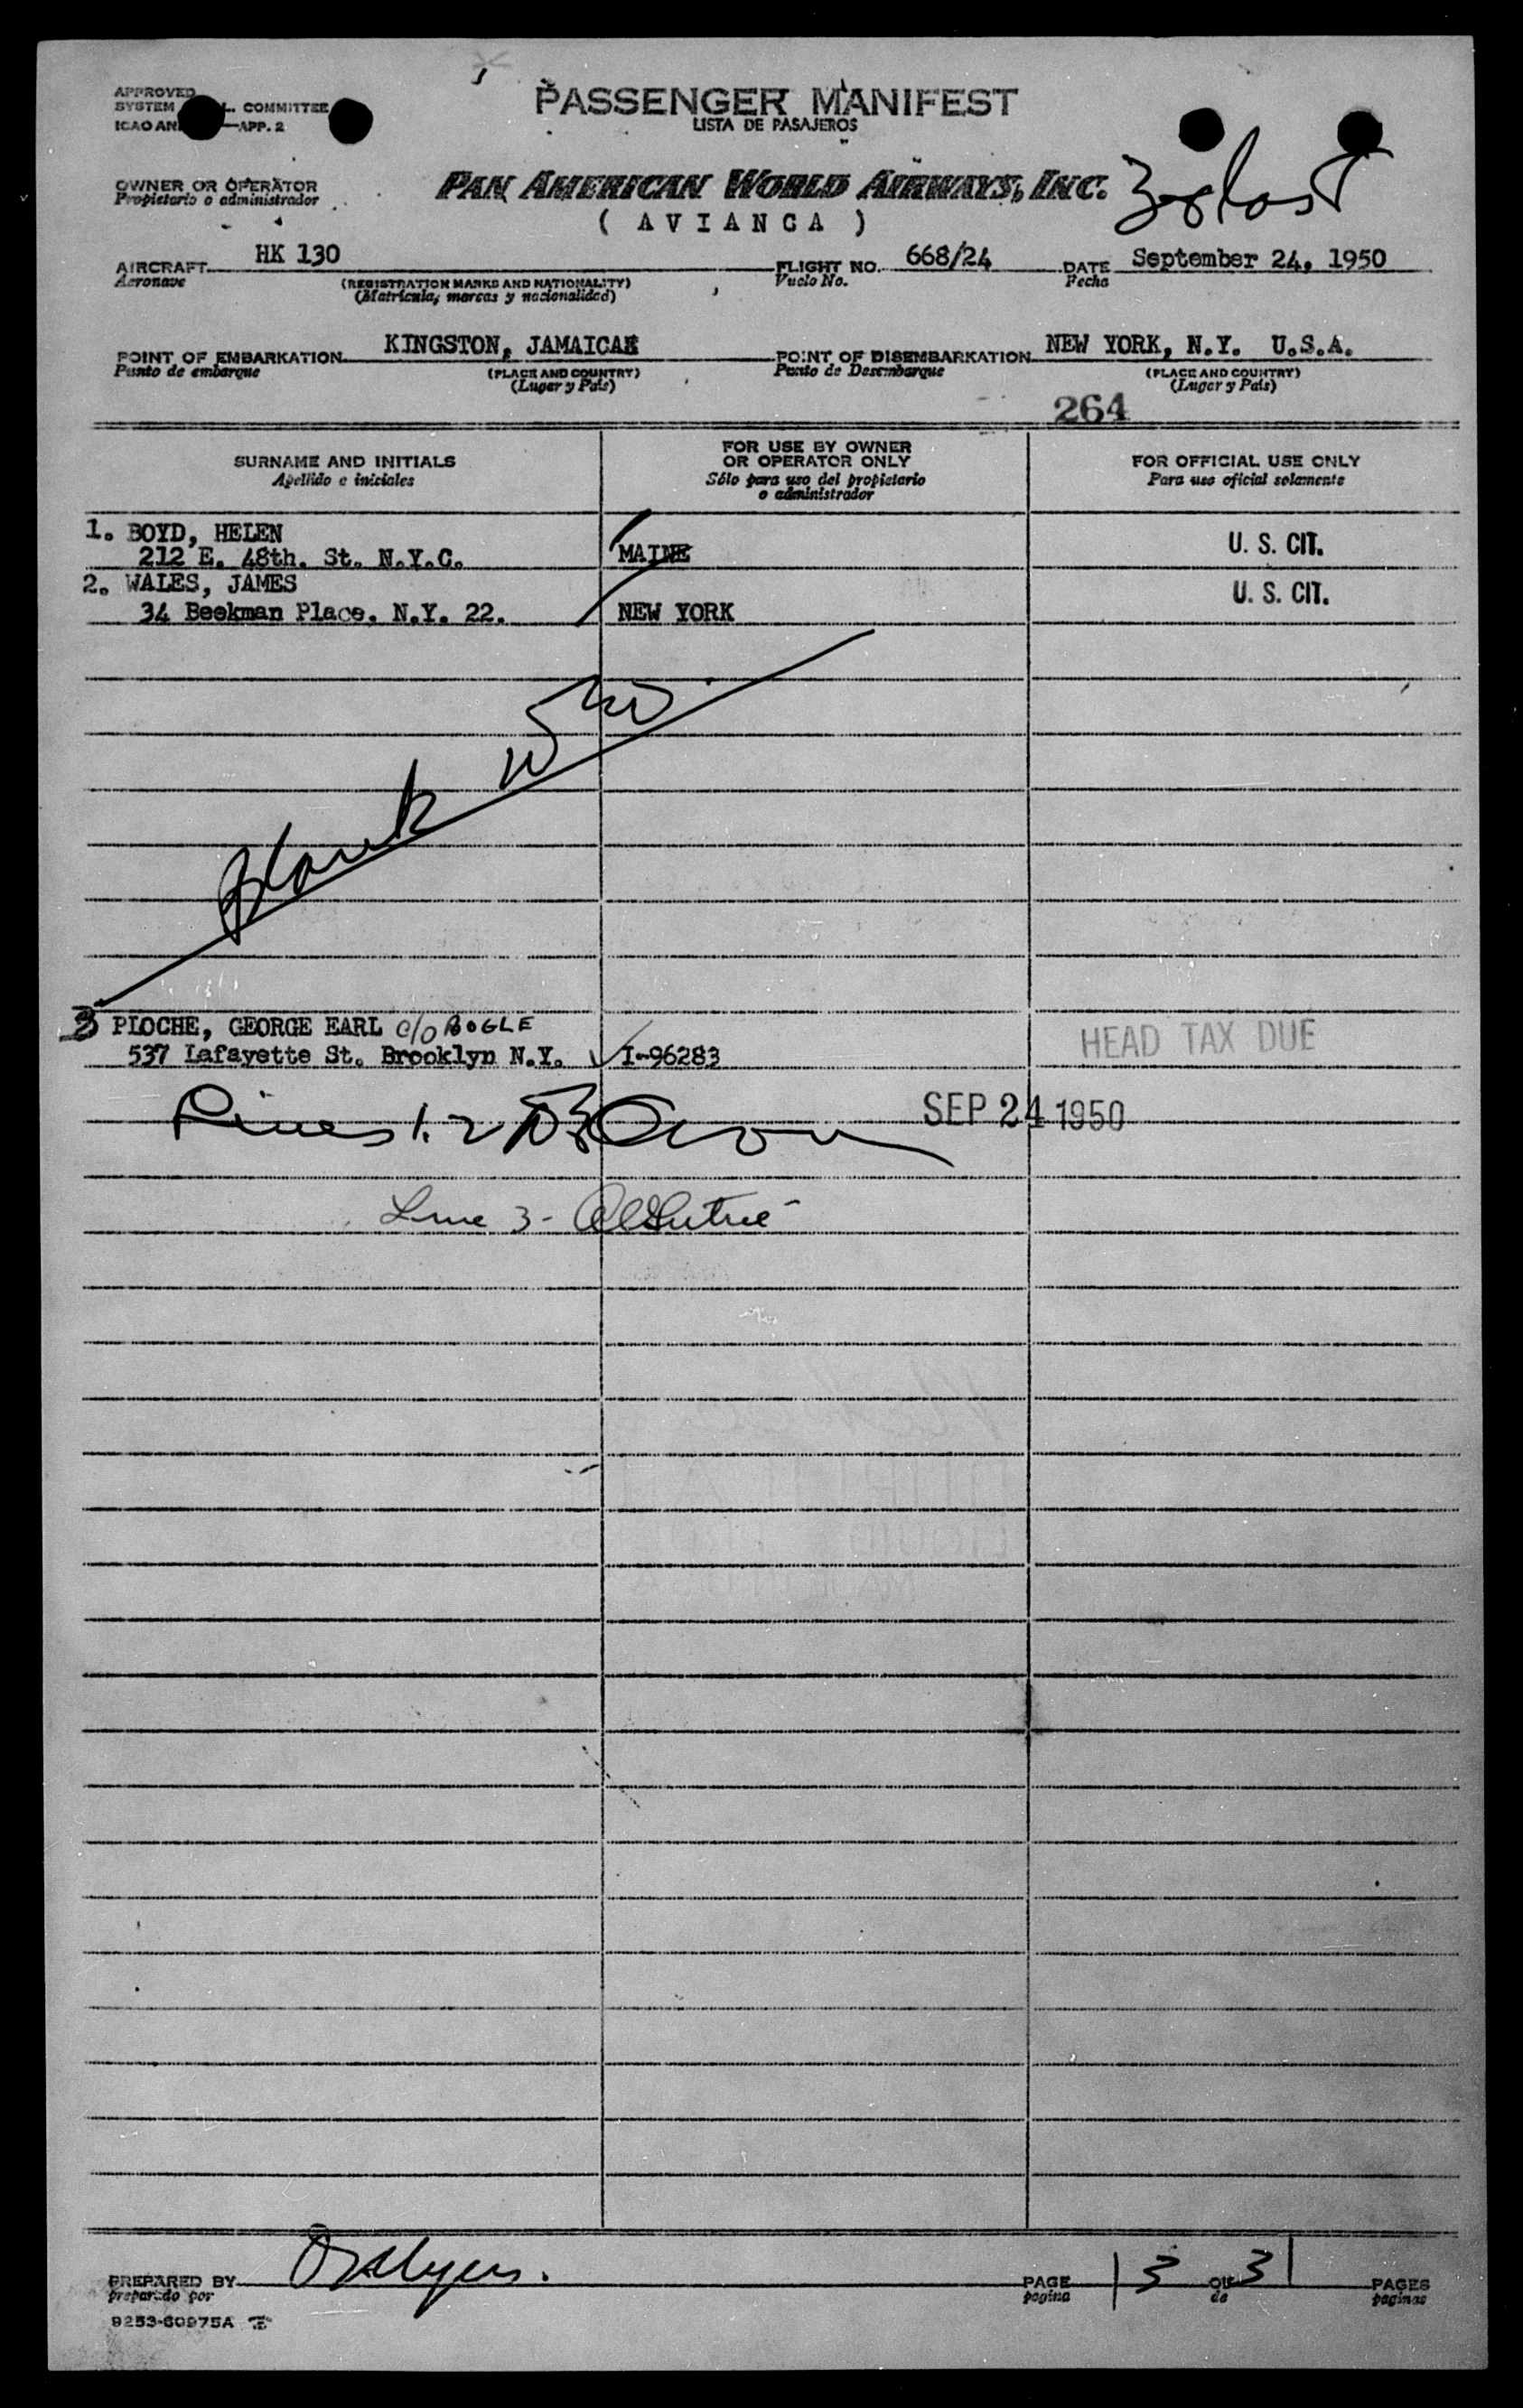 APPROVED
SYSTEM COMMITTEE
ICAO AN —APP. 2
PASSENGER MANIFEST
LISTA DE PASAJEROS
OWNER OR OPERATOR
Propietario o administrador
PAN AMERICAN WORLD AIRWAYS, INC.
( AVIANCA )
3 glost
AIRCRAFT HK 130
Aeronave
(REGISTRATION MARKS AND NATIONALITY)
(Matrícula, marcas y nacionalidad)
FLIGHT NO. 668/24
Vuelo No.
DATE September 24, 1950
Fecha
POINT OF EMBARKATION KINGSTON, JAMAICA
Punto de embarque
(PLACE AND COUNTRY)
(Lugar y País)
POINT OF DISEMBARKATION NEW YORK, N.Y. U.S.A.
Punto de Desembarque
(PLACE AND COUNTRY)
(Lugar y País)
264
SURNAME AND INITIALS
Apellido e iniciales
FOR USE BY OWNER
OR OPERATOR ONLY
Sólo para uso del propietario
o administrador
FOR OFFICIAL USE ONLY
Para uso oficial solamente
1. BOYD, HELEN
212 E. 48th. St. N.Y.C. MAINE U. S. CIT.
2. WALES, JAMES
34 Beekman Place, N.Y. 22. NEW YORK U. S. CIT.
Blank
3 PIOCHE, GEORGE EARL c/o BOGLE
537 Lafayette St. Brooklyn N.Y. I-96283 HEAD TAX DUE
Lines 1.2
SEP 24 1950
Line 3 -
PREPARED BY
preparado por
9253-60975A
PAGE 3 OF 3 PAGES
pagina de paginas